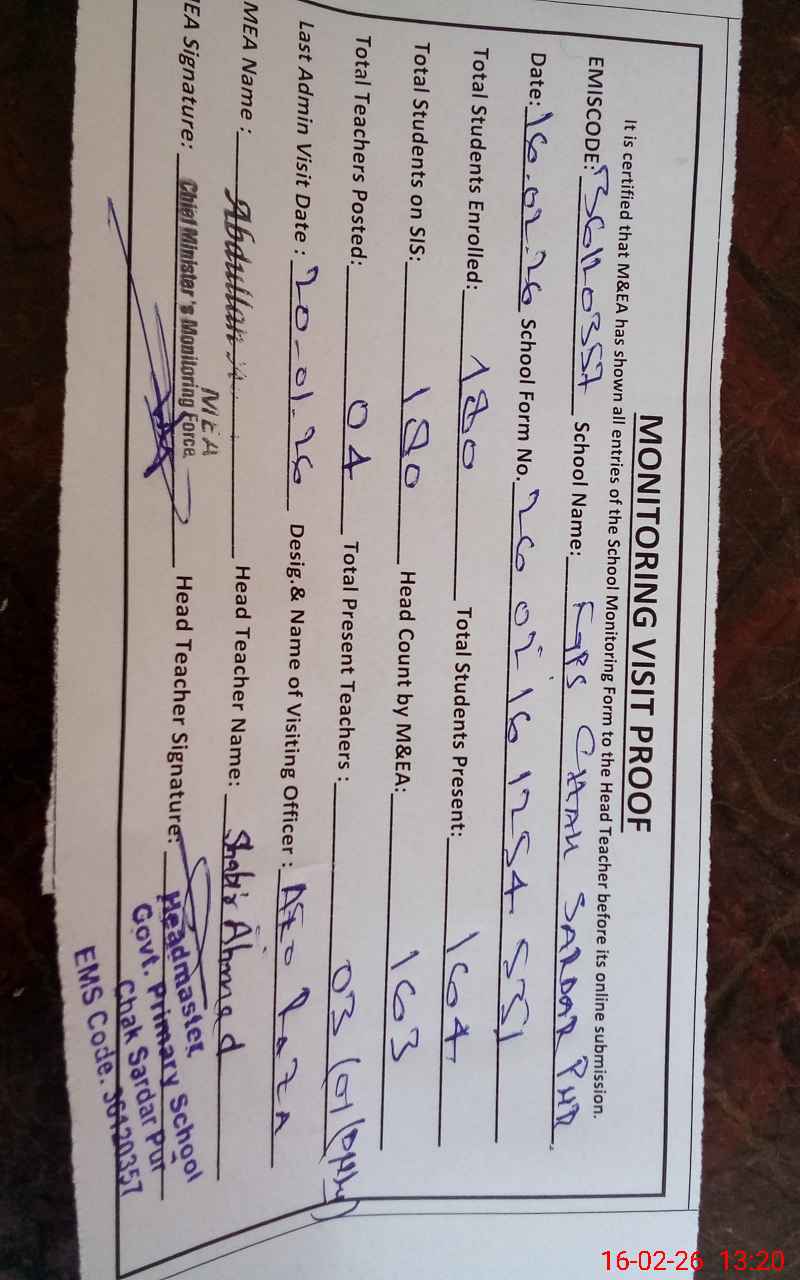 MONITORING VISIT PROOF
It is certified that M&EA has shown all entries of the School Monitoring Form to the Head Teacher before its online submission.
EMISCODE: 36120357 School Name: GPS CHAK SARDAR PUR
Date: 16.02.26 School Form No. 26 02 16 1254 531
Total Students Enrolled: 180 Total Students Present: 164
Total Students on SIS: 180 Head Count by M&EA: 163
Total Teachers Posted: 04 Total Present Teachers: 03
Last Admin Visit Date: 20-01-26 Desig.& Name of Visiting Officer: AEO RAZA
MEA Name: Abdullah Head Teacher Name: Shabir Ahmed
EA Signature: Head Teacher Signature:
MEA
Chief Minister's Monitoring Force
Headmaster
Govt. Primary School
Chak Sardar Pur
EMS Code. 36120357
16-02-26 13:20